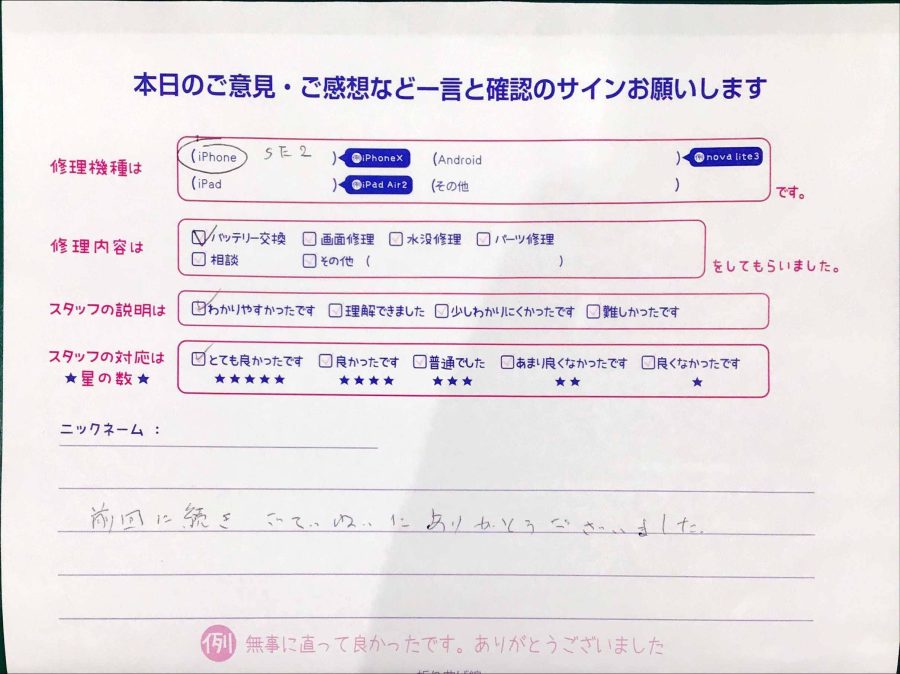 本日のご意見・ご感想など一言と確認のサインお願いします
修理機種は (iPhone SE2 ) iPhoneX (Android ) nova lite3
(iPad ) iPad Air2 (その他 ) です。
修理内容は バッテリー交換 画面修理 水没修理 パーツ修理
相談 その他 ( ) をしてもらいました。
スタッフの説明は わかりやすかったです 理解できました 少しわかりにくかったです 難しかったです
スタッフの対応は とても良かったです 良かったです 普通でした あまり良くなかったです 良くなかったです
★星の数★ ★★★★★ ★★★★ ★★★ ★★ ★
ニックネーム：
前回に続き ていねいにありがとうございました。
例 無事に直って良かったです。ありがとうございました